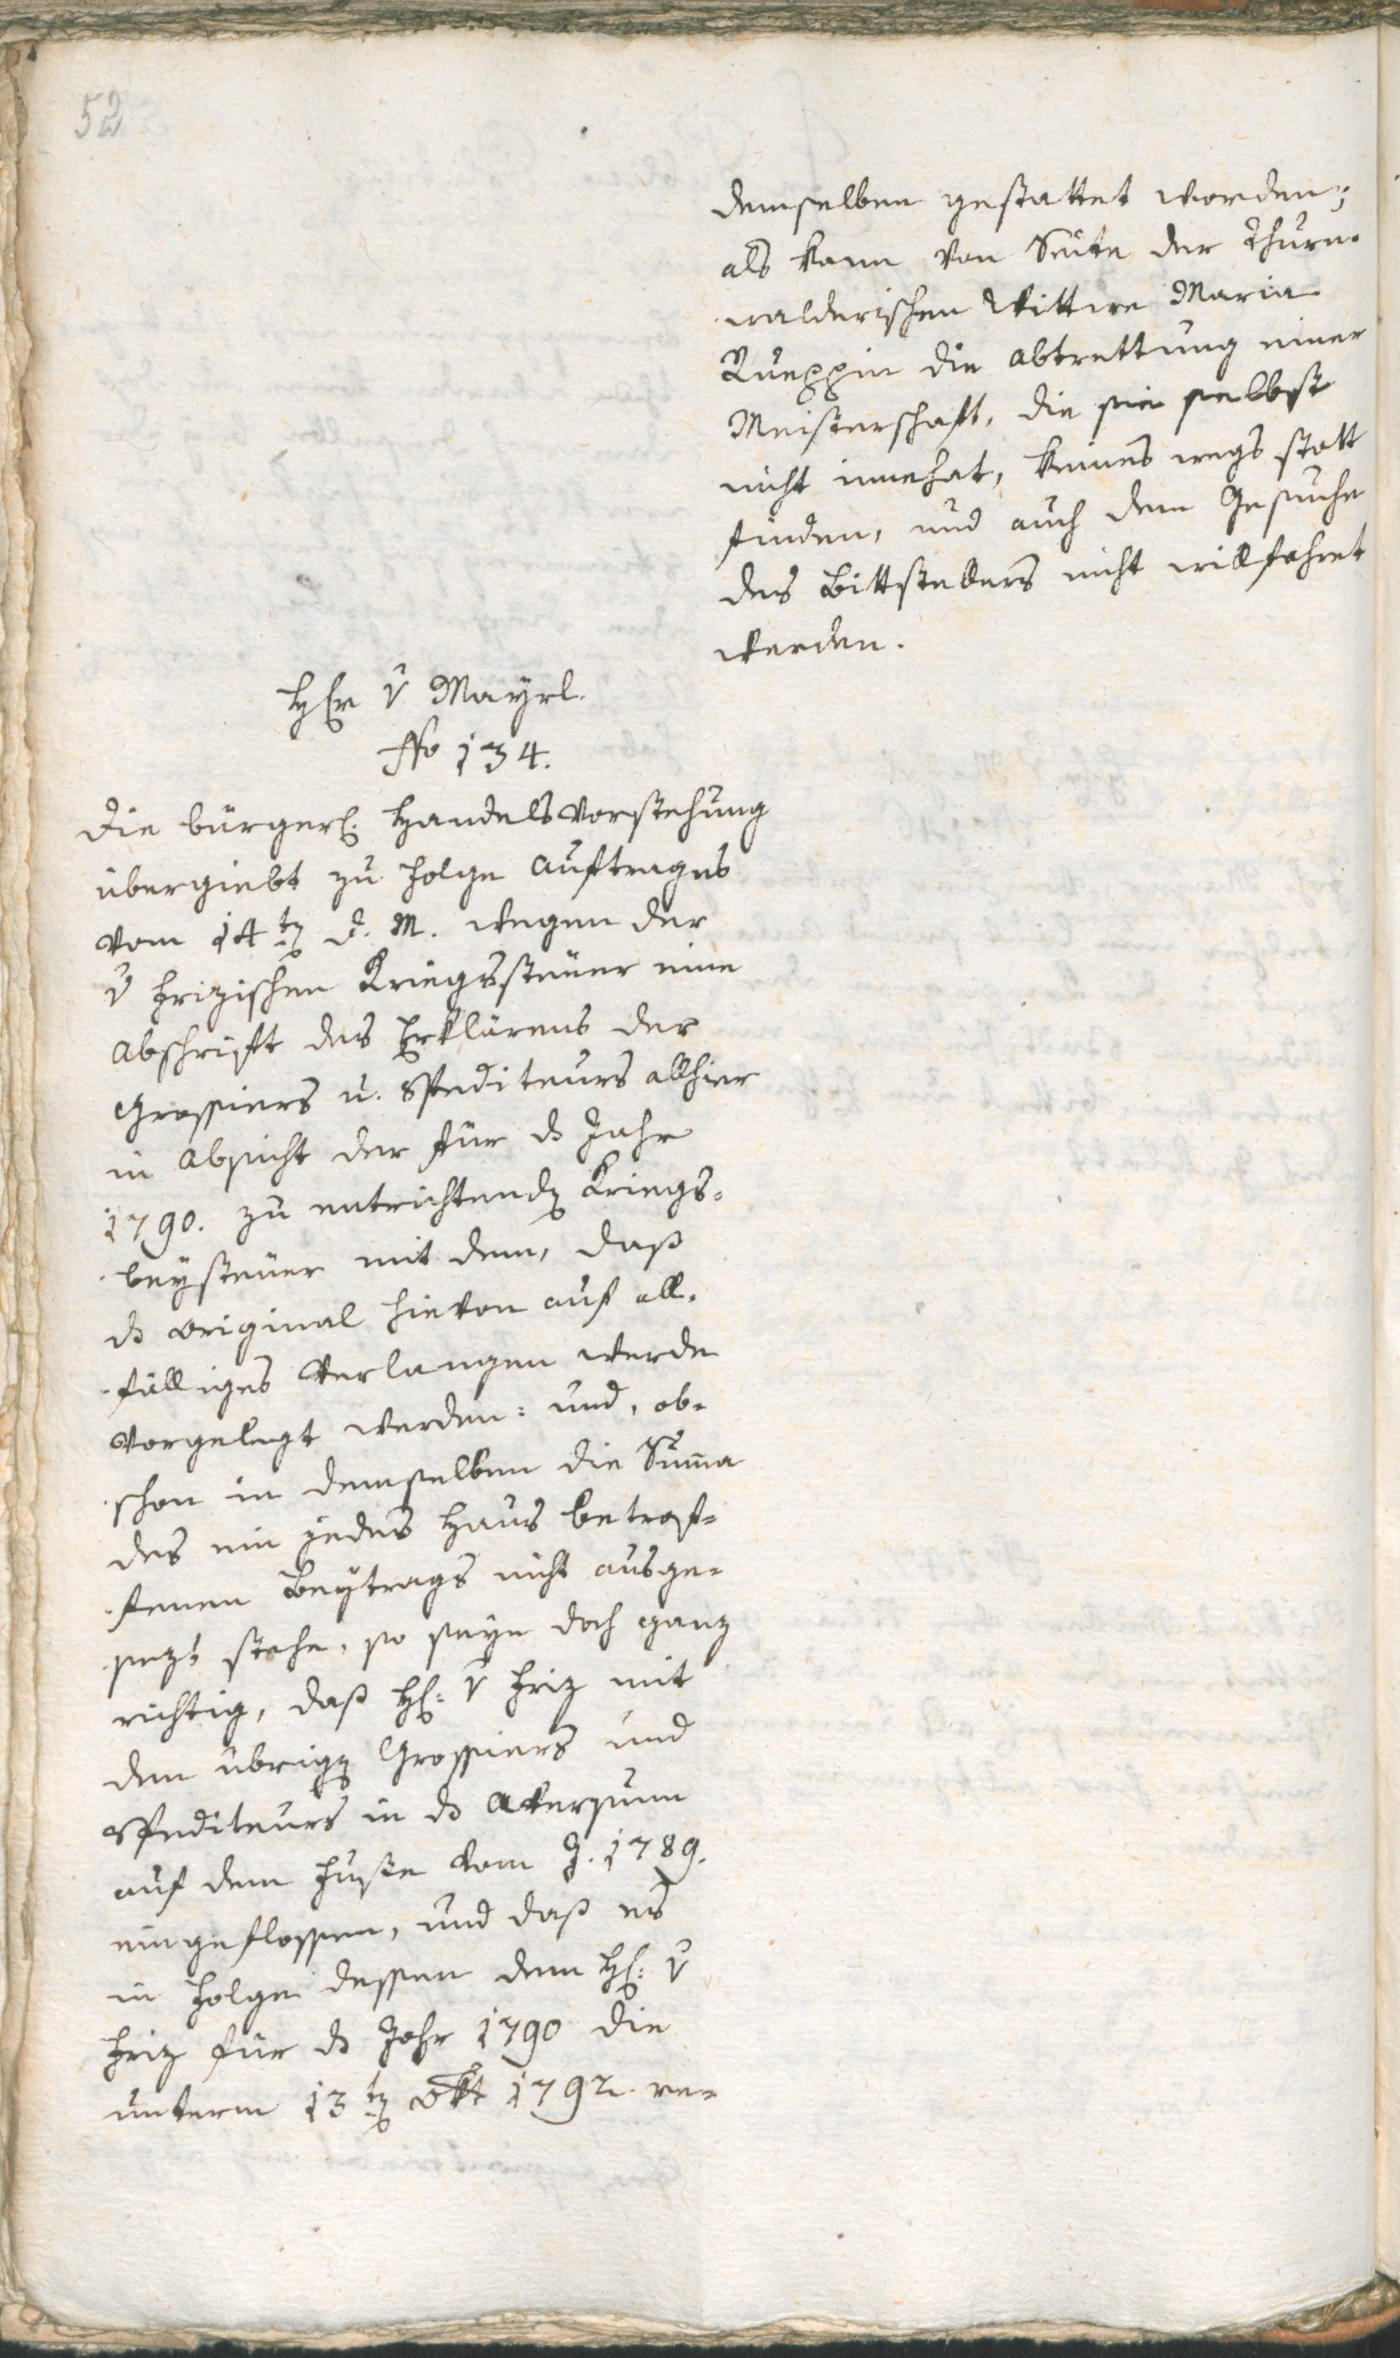 52
demselben gestattet worden;
als kann von Seite der Thurn-
walderischen Wittwe Maria
Rueppin die Abtrettung einer
Meisterschaft, die sie selbst
nicht innehat, keines wegs statt
finden, und auch dem Gesuche
des Bittstellers nicht willfahret
werden.
H̃Er v Mayrl.
No 134.
Die bürgerl. Handelsvorstehung
übergiebt zu Folge Auftrages
vom 14ten d. M. wegen der
v Frizischen Kriegssteuer eine
Abschrift des Erklärens der
Grossiers u. Spediteurs allhier
in Absicht der für ds Jahr
1790. zu entrichtenden Kriegs-
beysteuer mit dem, daß
ds Original hievon auf all-
fälliges Verlangen werde
vorgelegt werden: und, ob-
schon in demselben die Suma
des ein jedes Haus betrof-
fenen Beytrags nicht ausge-
sezt stehe, so seye doch ganz
richtig, daß H: v Friz mit
den übrigen Grossiers und
Spediteurs in ds Aversum
auf dem Fuße vom J. 1789.
eingeflossen, und daß es
in Folge dessen dem H: v
Friz für ds Jahr 1790 die
unterm 13ten Okt 1792. re-